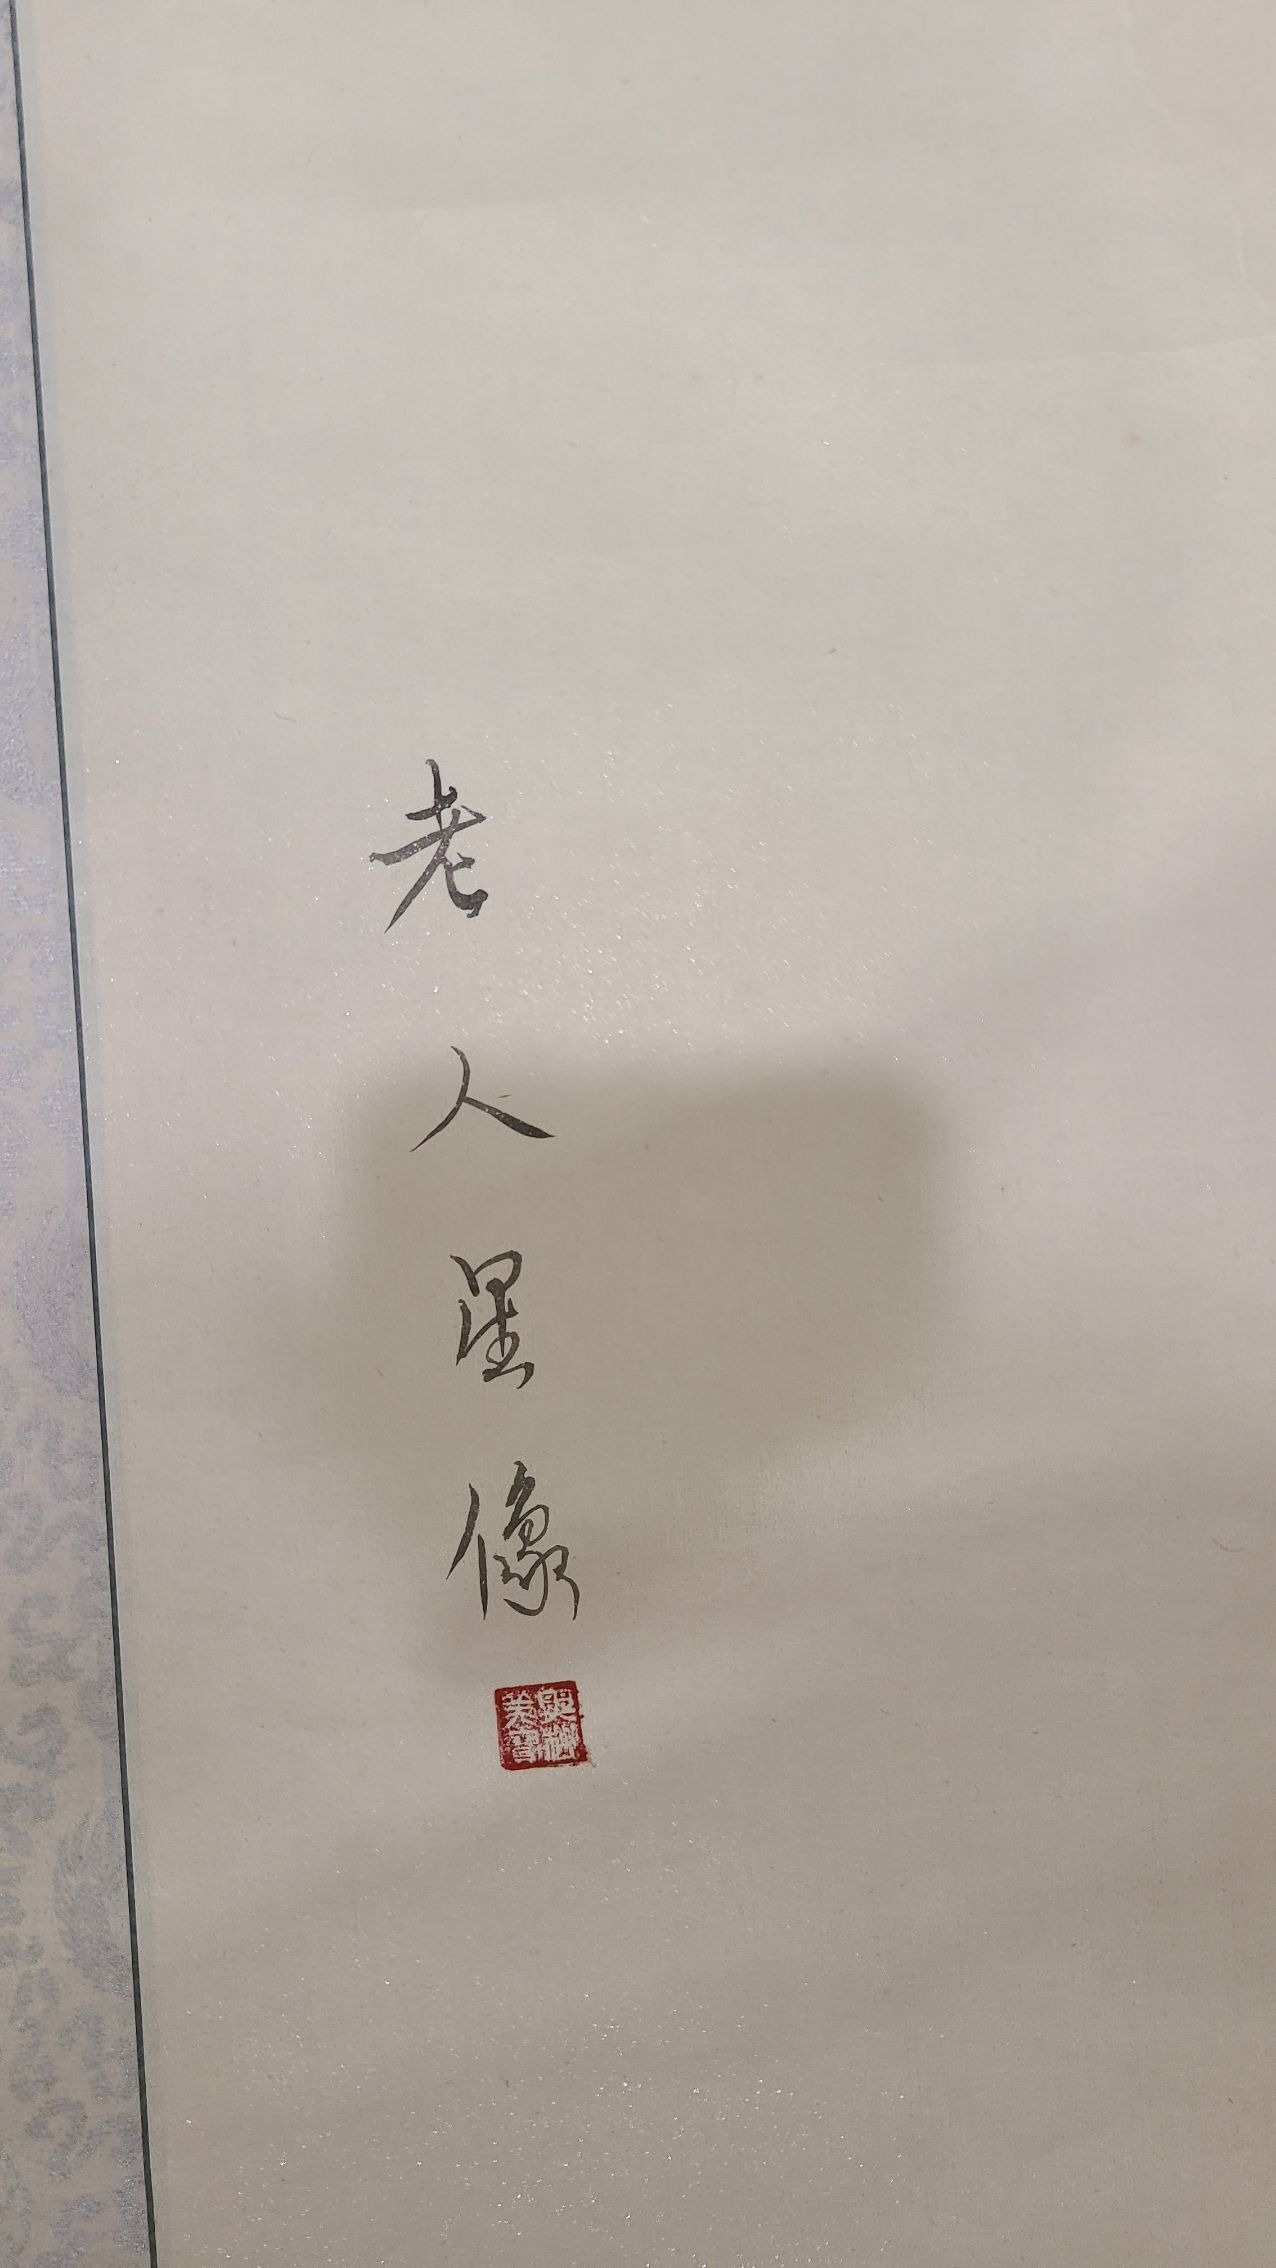 老人星像